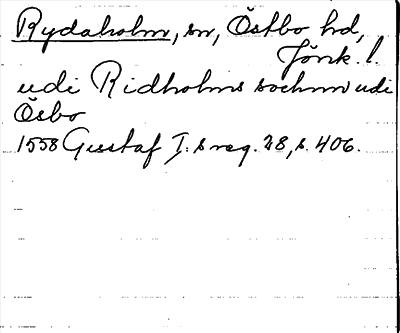 Rydaholm, sn, Östbo hd,
Jönk. l.
udi Ridholms sochnn udi
Ösbo
1558 Gustaf I:s reg. 28, s. 406.